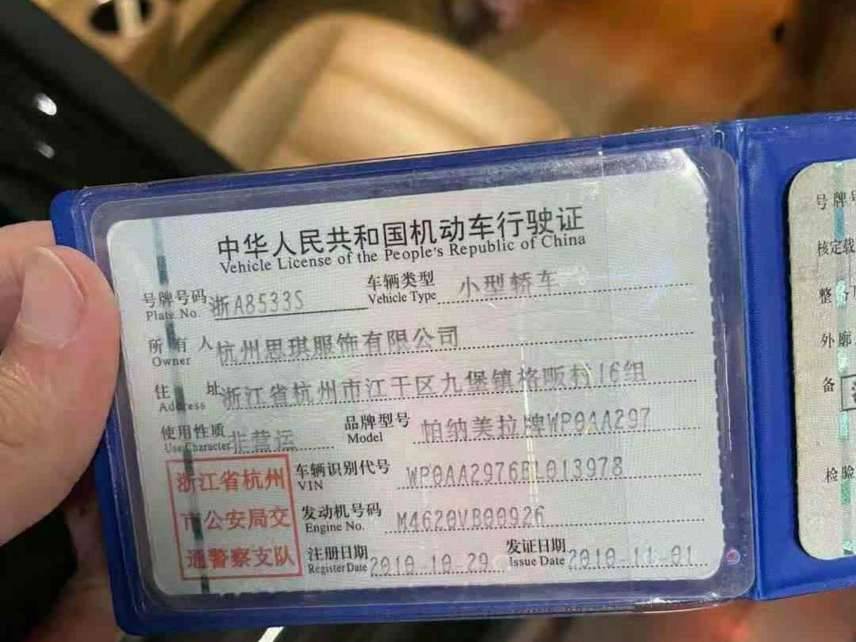 中华人民共和国机动车行驶证
Vehicle License of the People's Republic of China
号牌号码 浙A8533S 车辆类型 小型轿车
Plate No. Vehicle Type
所有人 杭州思琪服饰有限公司
Owner
住址 浙江省杭州市江干区九堡镇格畈村16组
Address
使用性质 非营运 品牌型号 帕纳美拉牌WP0AA297
Use Character Model
浙江省杭州
市公安局交
通警察支队
车辆识别代号 WP0AA2976BL013978
VIN
发动机号码 M4620VB00926
Engine No.
注册日期 2010-10-29 发证日期 2010-11-01
Register Date Issue Date
号牌号
核定载
整备
外廓
备
检验